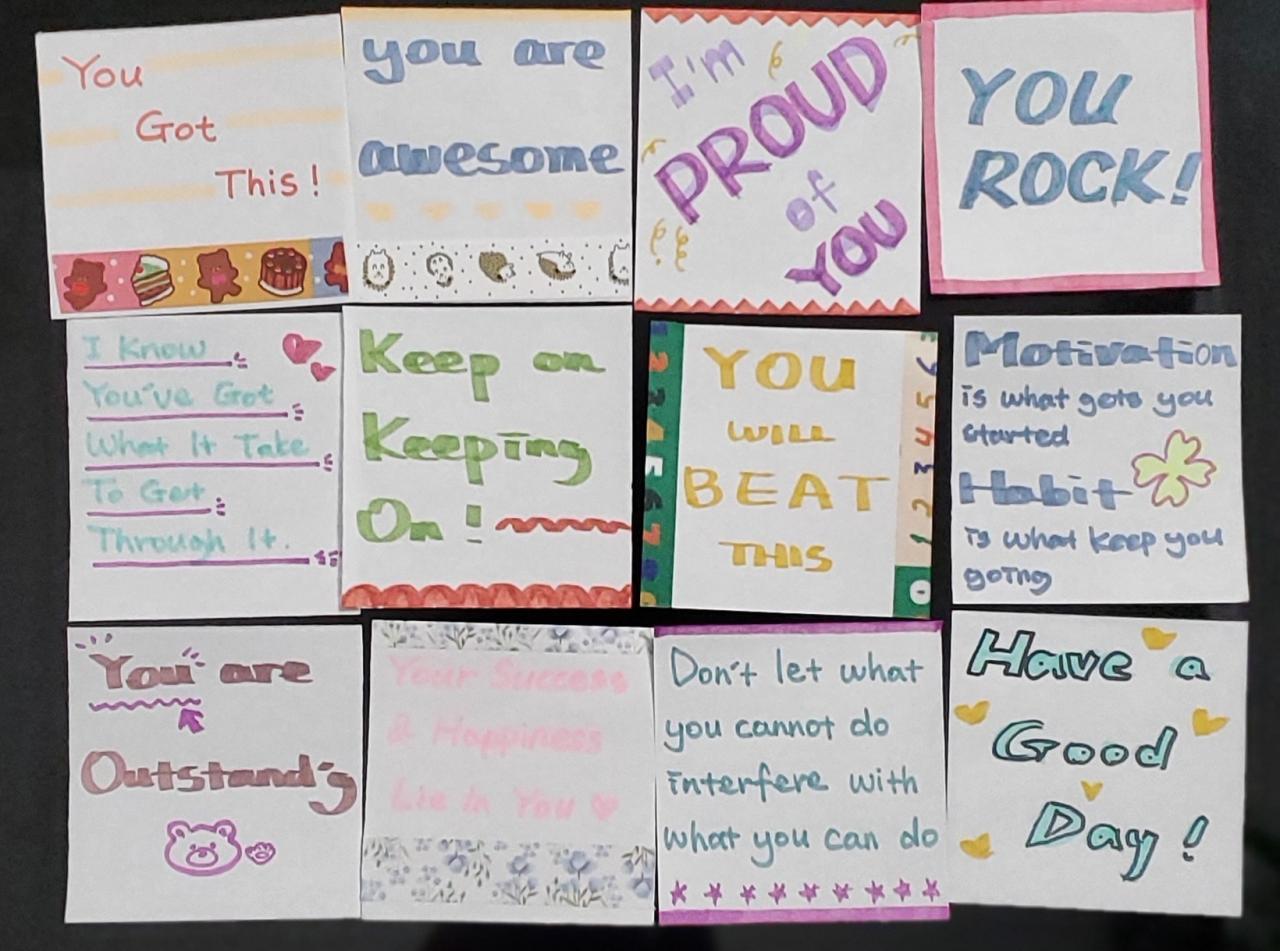 You
Got
This!
you are
awesome
I'm
PROUD
of
YOU
YOU
ROCK!
I Know
You've Got
What It Take
To Get
Through It.
Keep on
Keeping
On!
YOU
WILL
BEAT
THIS
0 1 2 3 4 5 6
Motivation
is what gets you
started
Habit
is what keep you
going
You are
Outstand'g
Your Success
& Happiness
Lie In You
Don't let what
you cannot do
interfere with
what you can do
Have a
Good
Day!